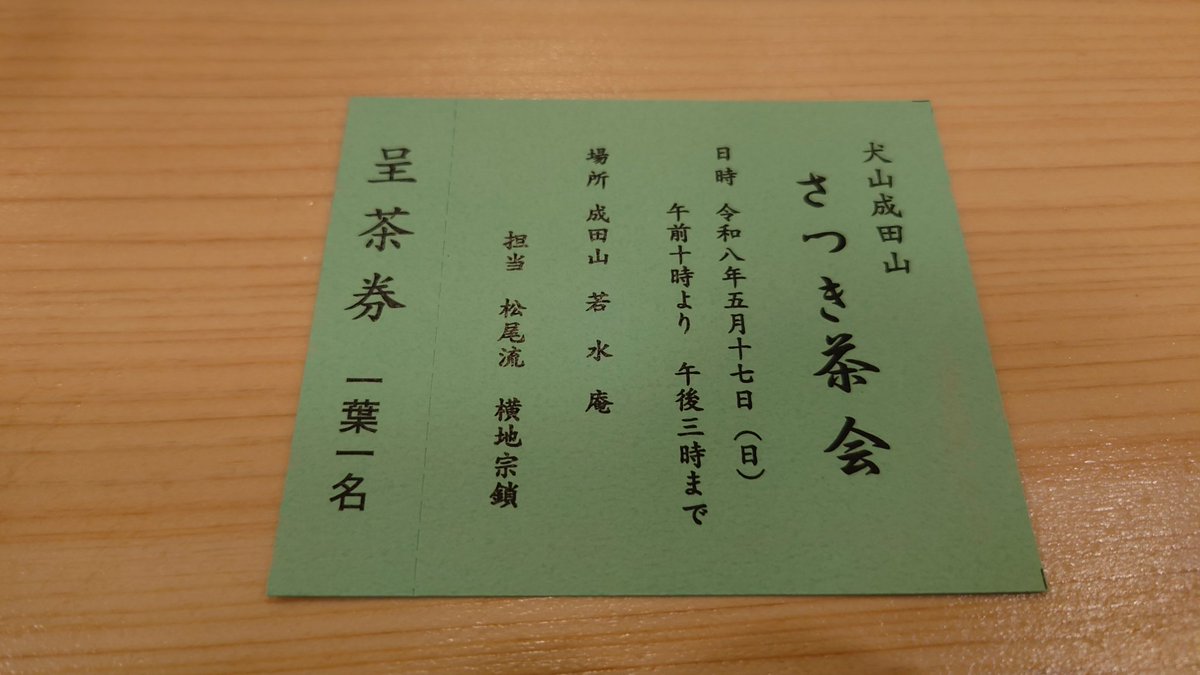 犬山成田山
さつき茶会
日時 令和八年五月十七日（日）
午前十時より 午後三時まで
場所 成田山 若水庵
担当 松尾流 横地宗鎖
呈茶券 一葉一名